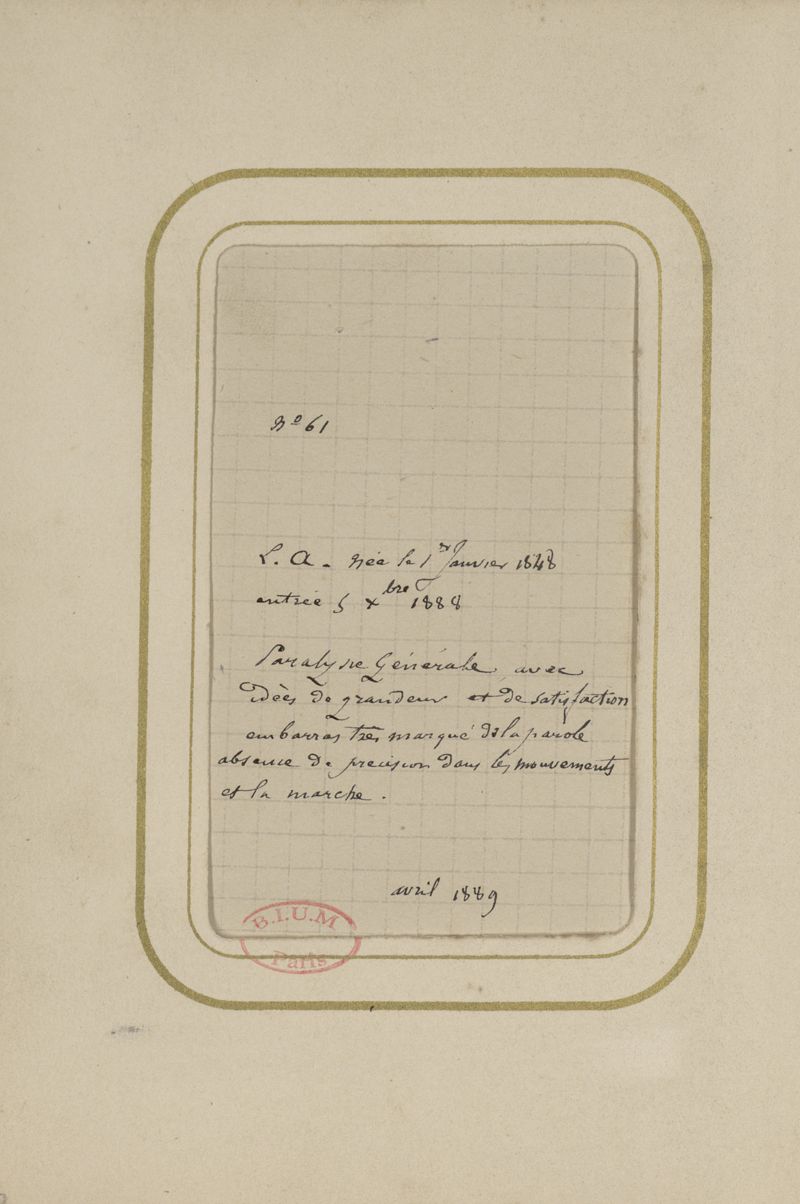 Nº 61
L. A. née le 1er Janvier 1848
entrée 5 xbre 1888
Paralysie Générale, avec
idées de grandeur et de satisfaction
embarras très marqué de la parole
absence de précision dans les mouvements
et la marche.
avril 1889
B.I.U.M
Paris